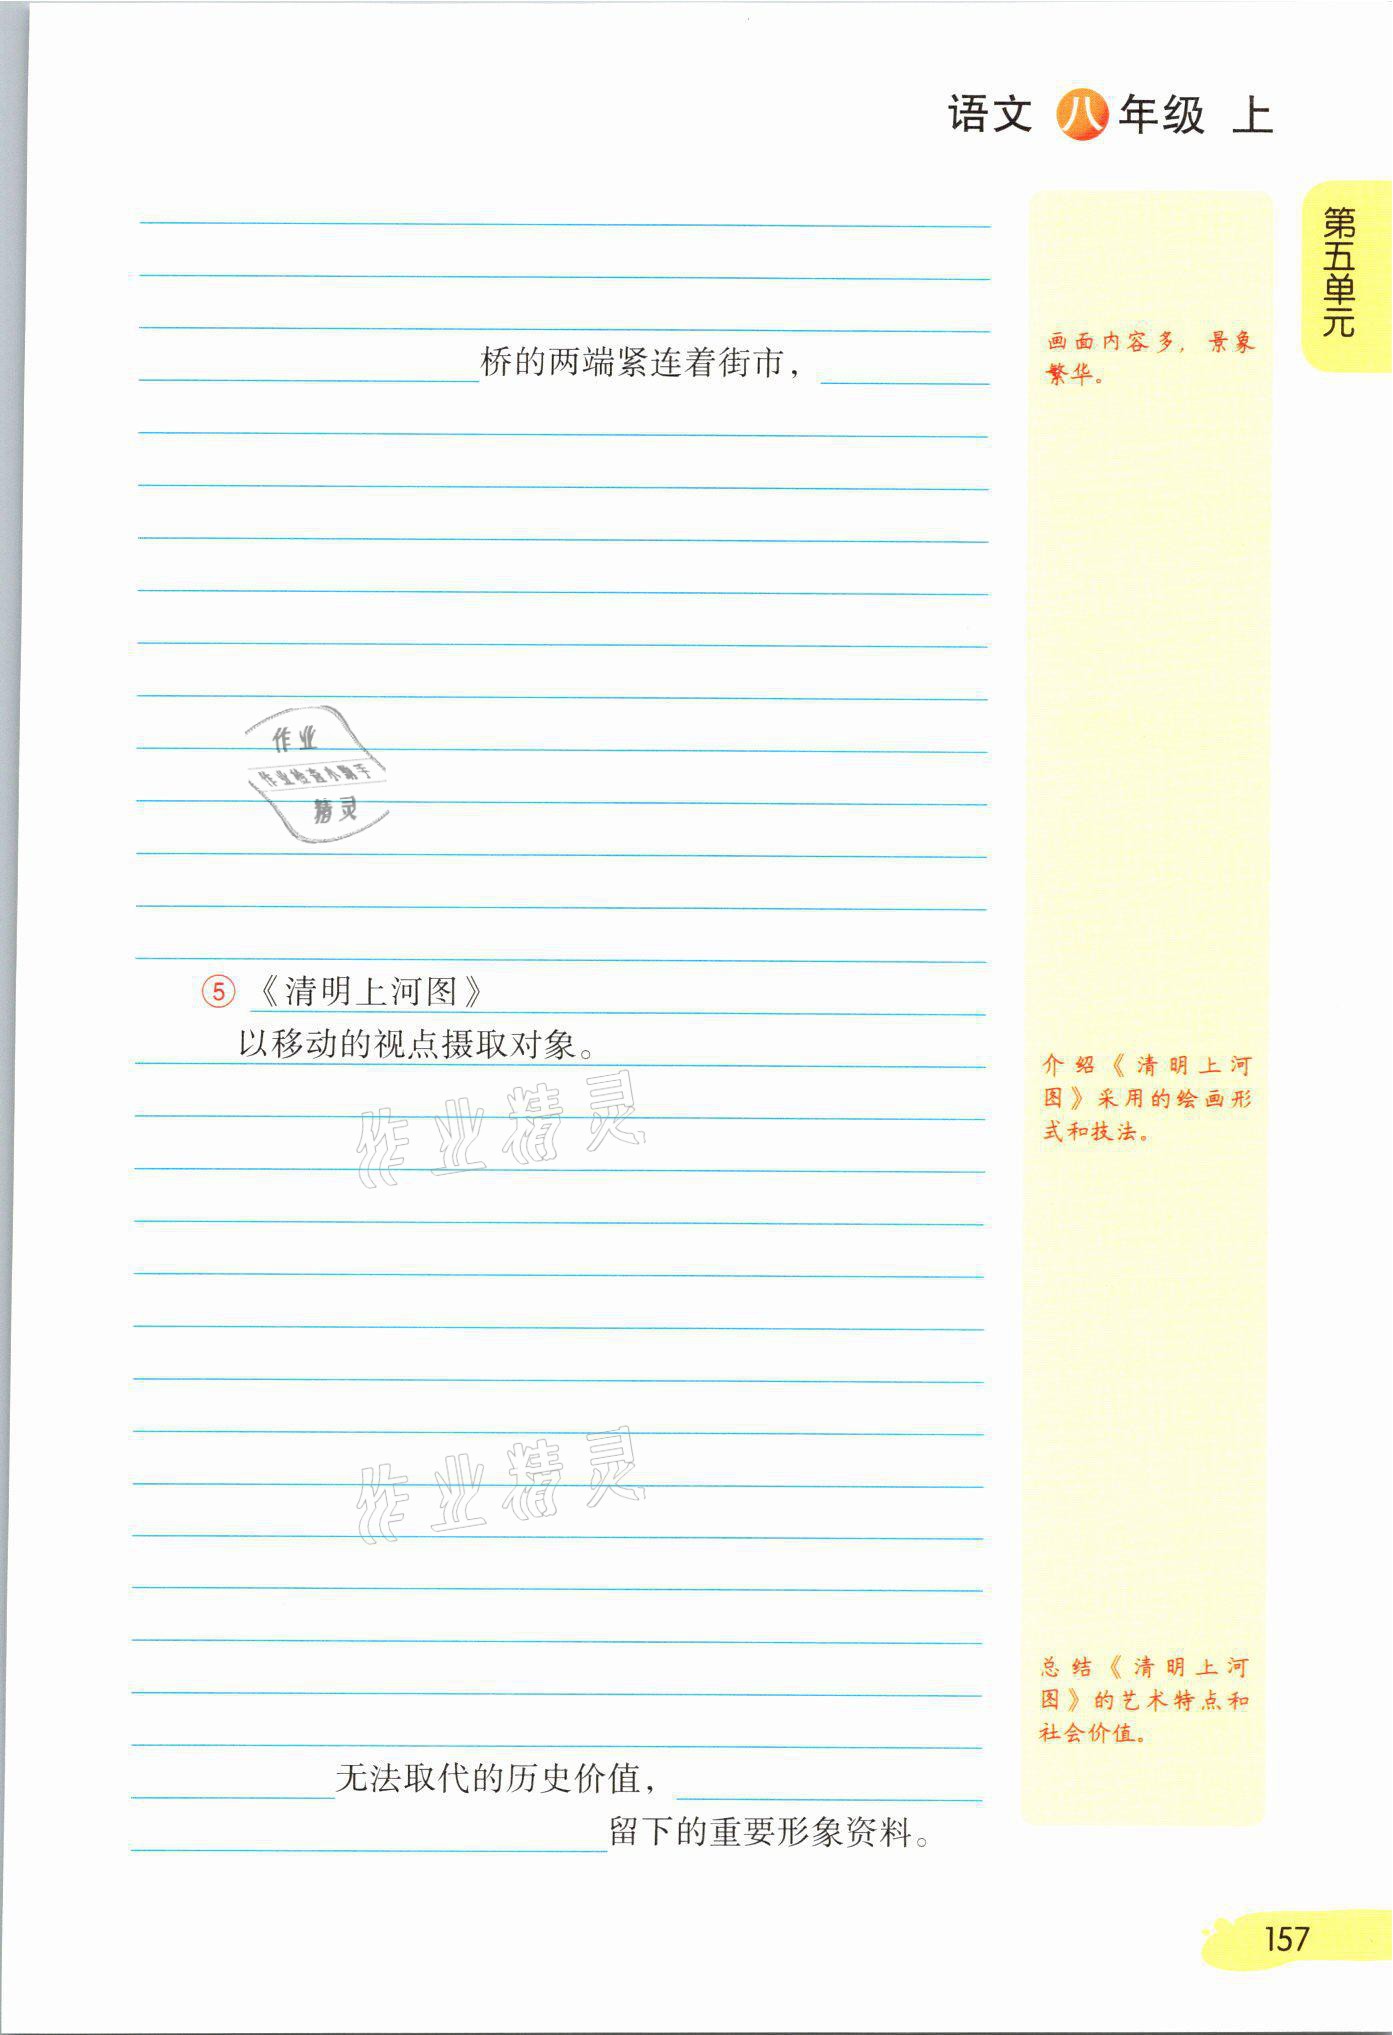 语文 八 年级 上
第五单元
桥的两端紧连着街市，
画面内容多，景象
繁华。
作业
作业检查小助手
精灵
⑤《清明上河图》
以移动的视点摄取对象。
介绍《清明上河
图》采用的绘画形
式和技法。
作业精灵
作业精灵
总结《清明上河
图》的艺术特点和
社会价值。
无法取代的历史价值，
留下的重要形象资料。
157